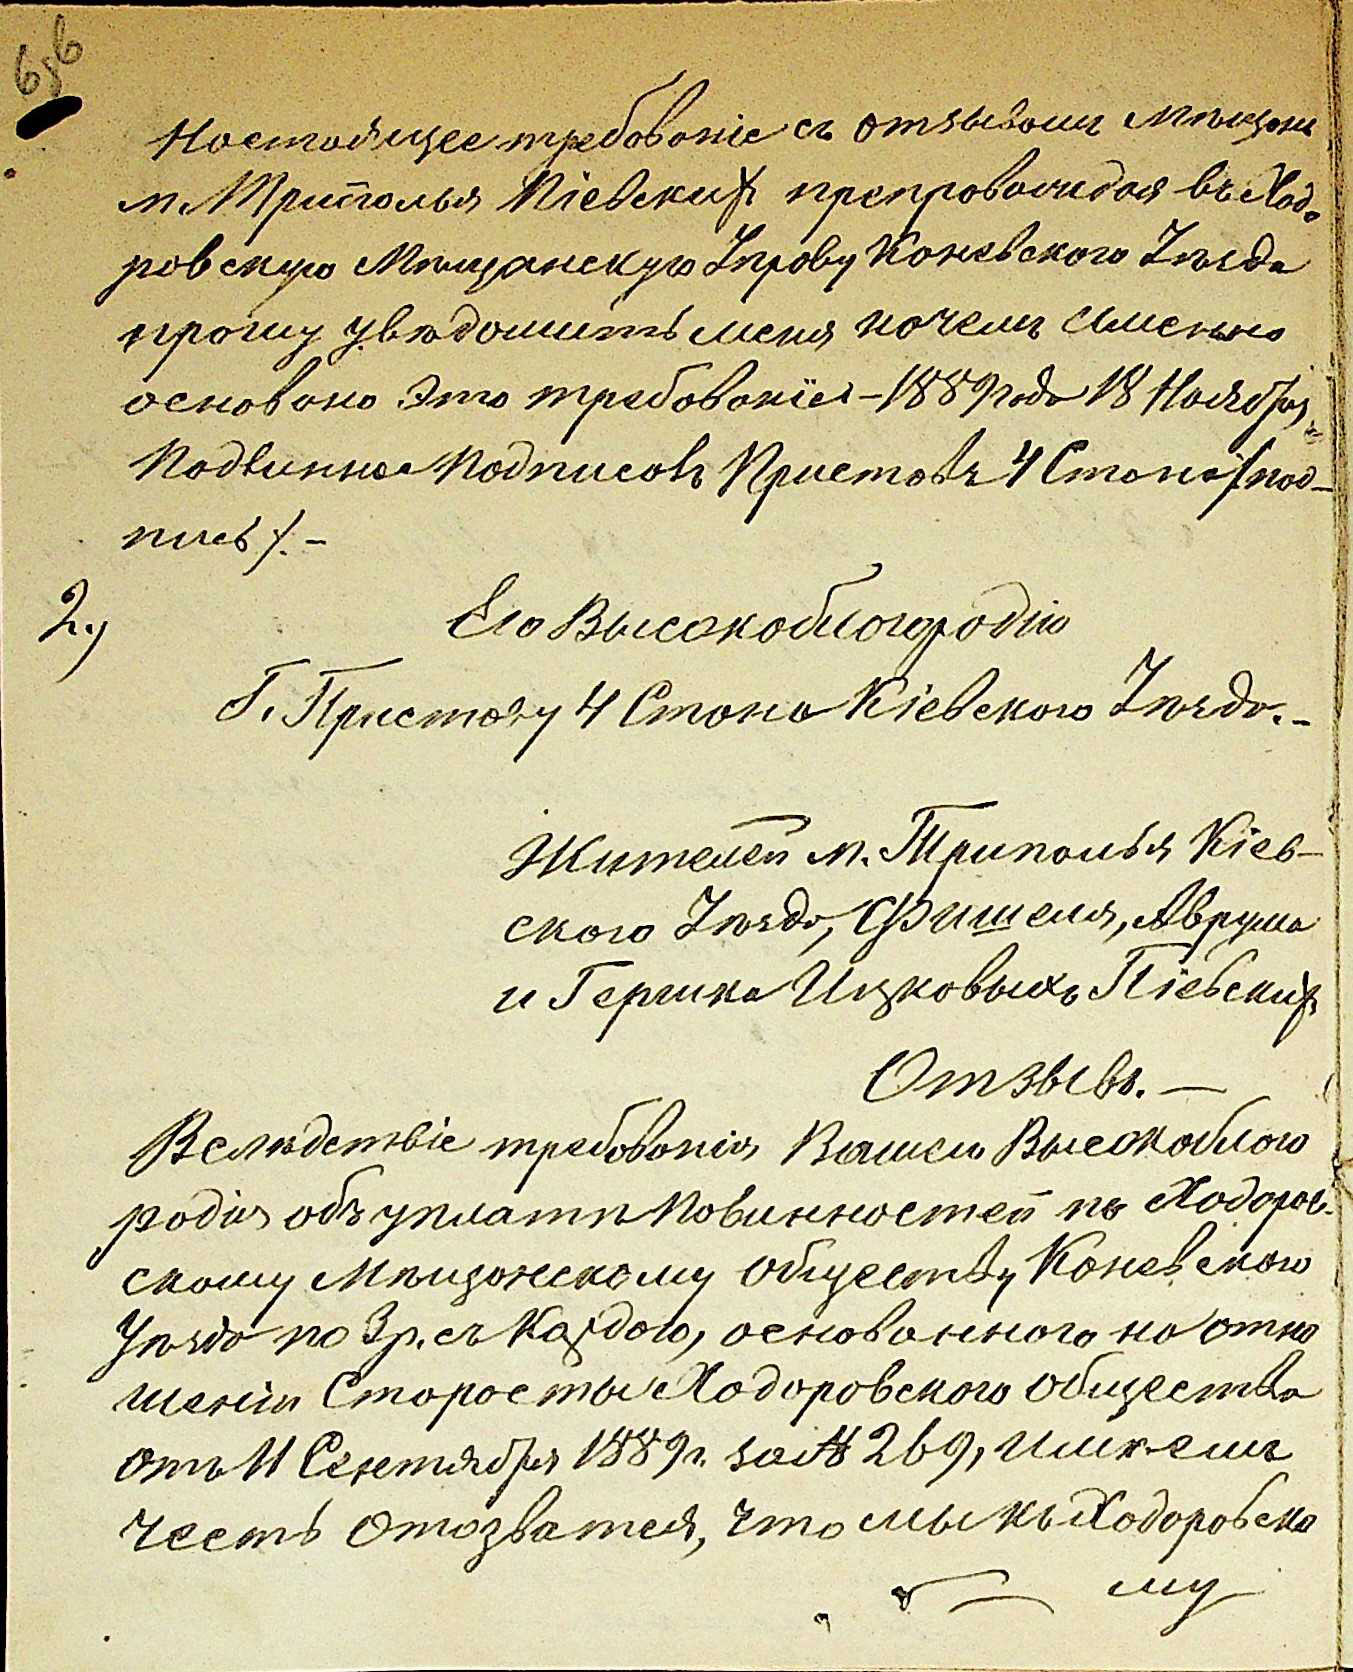 6,6
Настоящее требованіе съ отзывомъ Мѣщанъ
м. Триполья Кіевскихъ препровождая въ Ходо
ровскую Мѣщанскую Управу Каневского Уѣзда
прошу увѣдомить меня на чемъ именно
основано это требованіе – 1889 года 18 Ноября.
Подлинное подписалъ Приставъ 4 Стана /под-
пись/. –
2.)
Его Высокоблагородію
Г. Приставу 4 Стана Кіевского Уѣзда. –
Жителей м. Триполья Кіев-
ского Уѣзда, Фишеля, Аврума
и Гершка Ицковыхъ Кіевскихъ
Отзывъ. —
Вслѣдствіе требованія Вашего Высокоблаго
родія объ уплатѣ повинностей по Ходоров-
скому Мѣщанскому обществу Каневского
Уѣзда по 3 р. съ каждого, основанного на отно
шеніи Старосты Ходоровского общества
отъ 11 Сентября 1889 г. за № 269, имѣемъ
честь отозватся, что мы къ Ходоровско
му